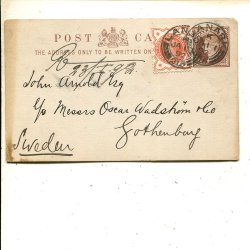 POST CARD
THE ADDRESS ONLY TO BE WRITTEN ON THIS
John Arnold Esq
c/o Messrs Oscar Wadström & Co
Gothenburg
Sweden